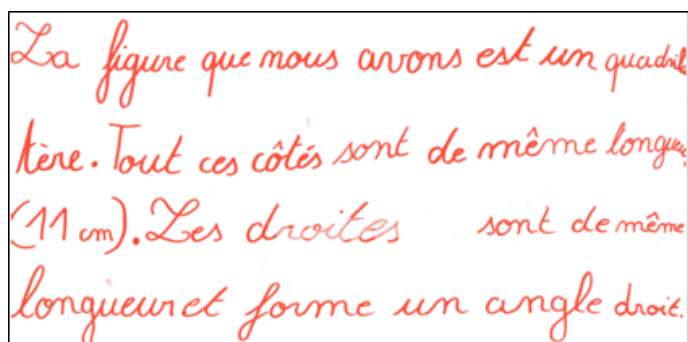 La figure que nous avons est un quadrila
tère. Tout ces côtés sont de même longueu
(11 cm). Les droites sont de même
longueur et forme un angle droit.